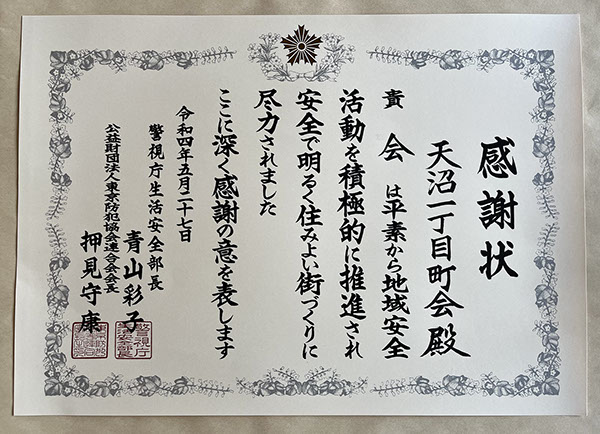 感謝状
天沼一丁目町会殿
貴会は平素から地域安全
活動を積極的に推進され
安全で明るく住みよい街づくりに
尽力されました
ここに深く感謝の意を表します
令和四年五月二十七日
警視庁生活安全部長
青山彩子
公益財団法人東京防犯協会連合会会長
押見守康